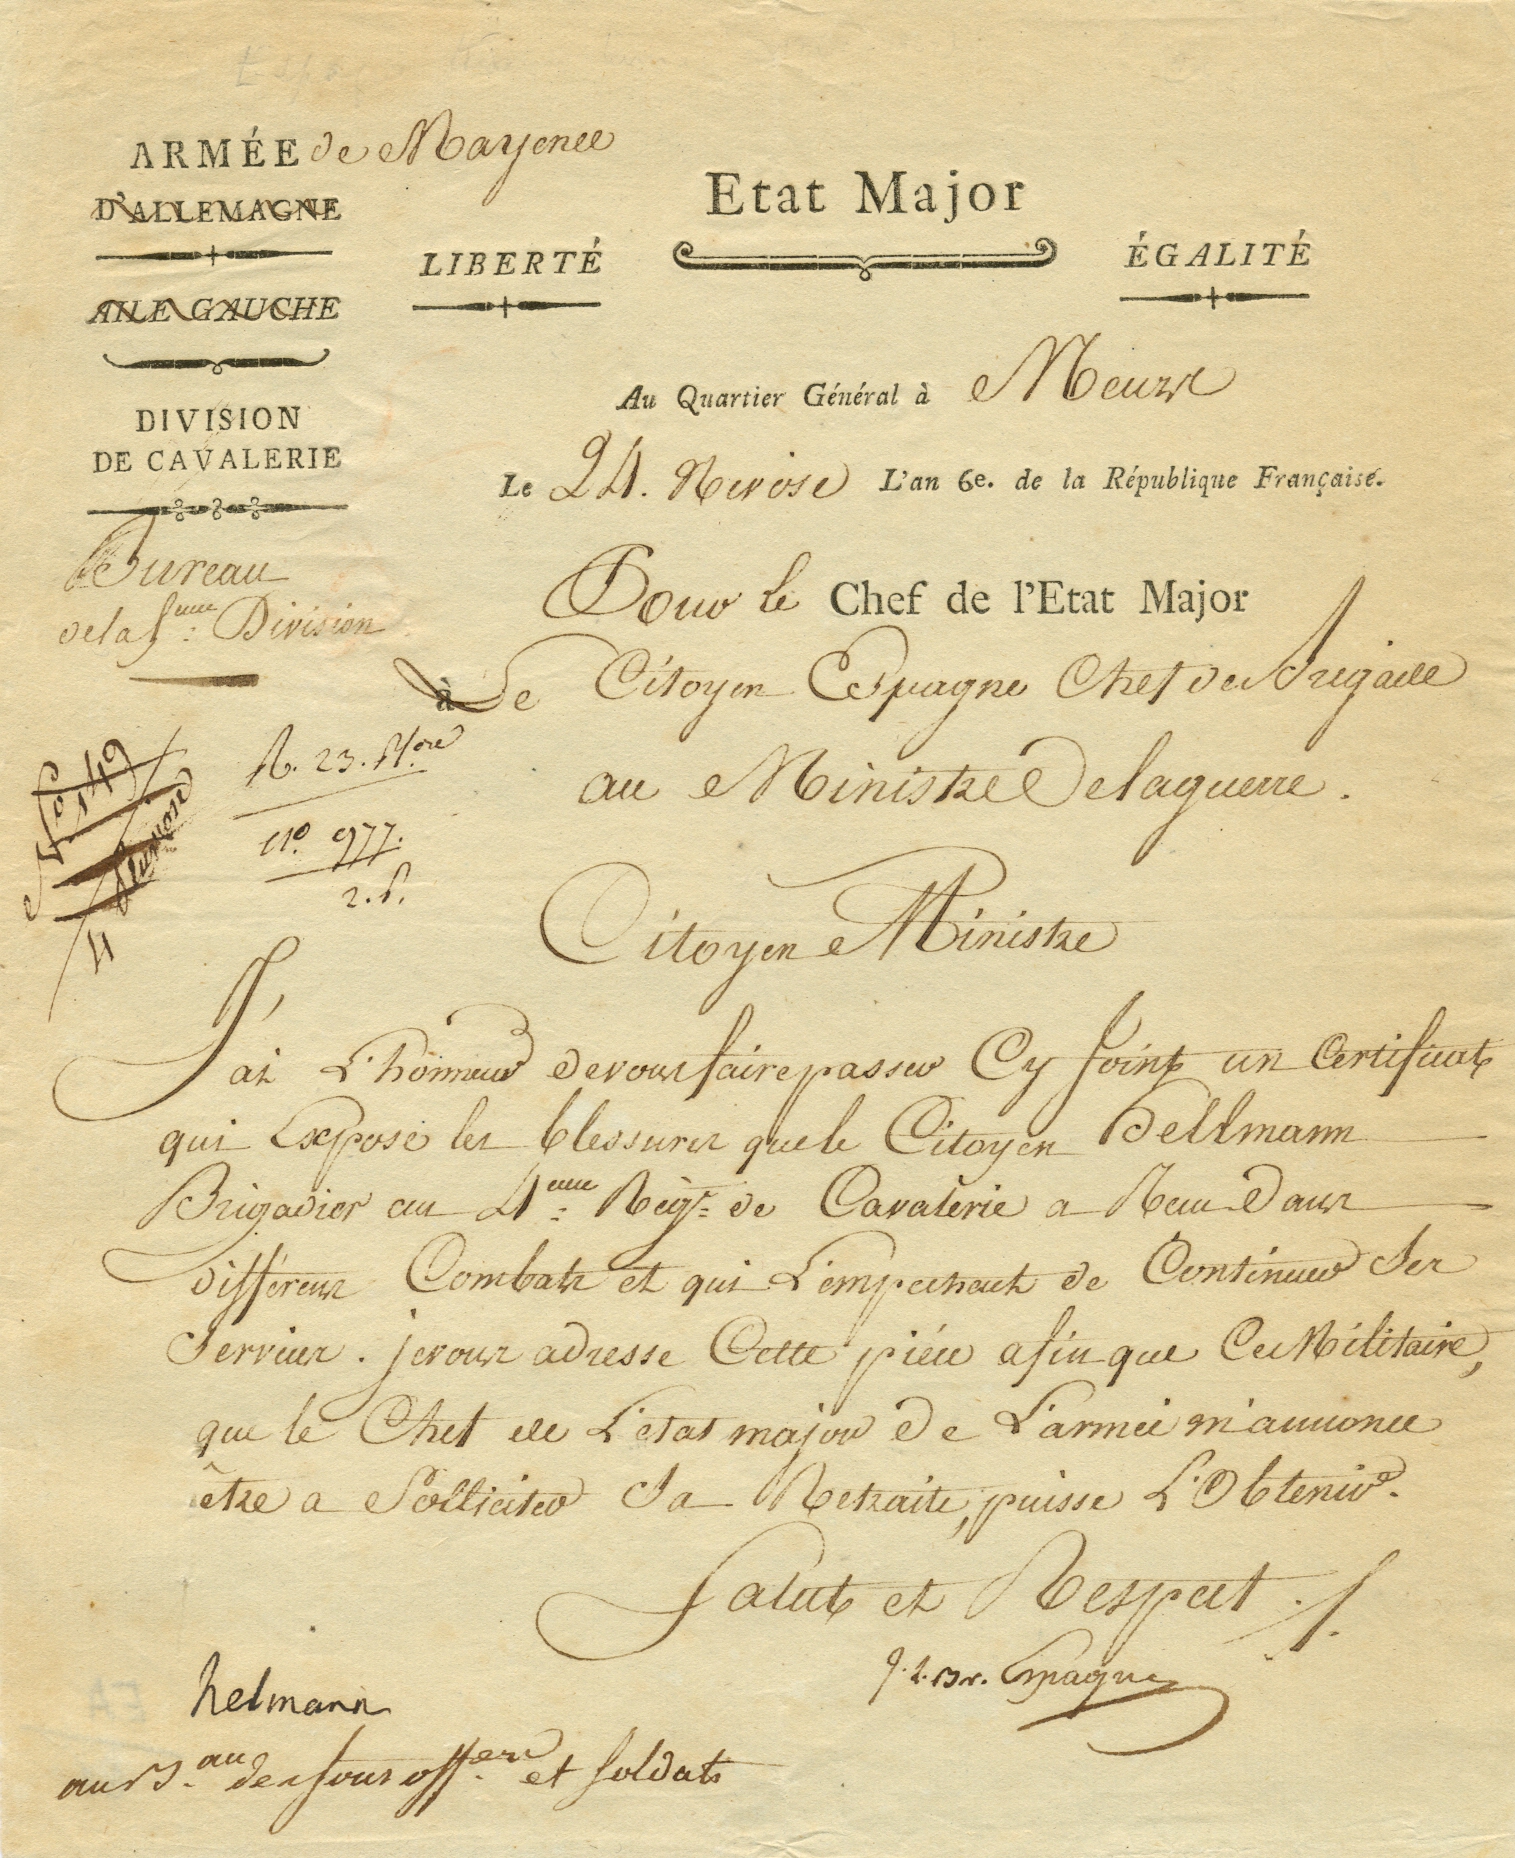 ARMÉE de Mayence
D'ALLEMAGNE
AILE GAUCHE
DIVISION
DE CAVALERIE
Bureau
de la 5eme Division
Etat Major
LIBERTÉ
ÉGALITÉ
Au Quartier Général à Meurs
Le 24. Nivose L'an 6e. de la République Française.
Pour le Chef de l'Etat Major
à Le Citoyen Espagne Chef de Brigade
au Ministre De la guerre.
No 149
4 Pluviose
R. 23. Niv.ose
No. 977.
2. P.
Citoyen Ministre
J'ai L'honneur de vous faire passer Cy Joint un Certificat
qui Expose les blessures que le Citoyen Hellmann
Brigadier au 4eme Régt. de Cavalerie a Recu Dans
différens Combats et qui L'empechent de Continuer Ses
Services. je vous adresse Cette piéce afin que Ce Militaire,
que le Chef de L'etat major De L'armée m'annonce
être a Solliciter Sa Retraite, puisse L'Obtenir.
Salut et Respect
Espagne
helmann
au B.au des sous off.ers et soldats